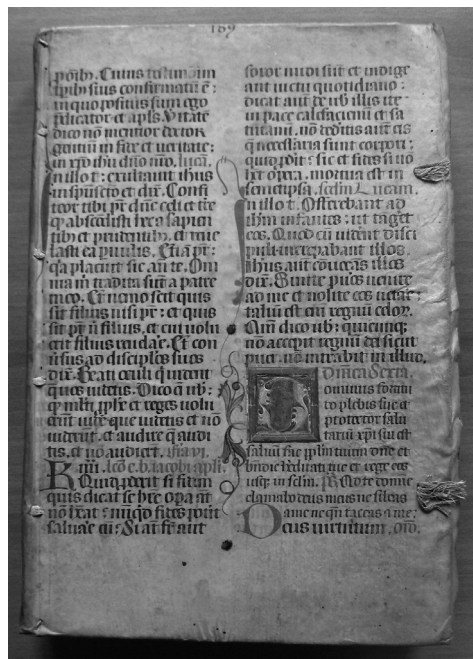 189
temporibus suis confirmatum ē:
in quo positus sum ego
predicator et apls. Vitatē
dico nō mentior doctor
gentium in fide et veritate:
in xpo ihu dno nro.
In illo t: exultavit ihus
in spū scto et dix. Confi
teor tibi pr dne celi et tre
q abscondisti hec a sapien
tibus et prudentibus, et reve
lasti ea pvulis. Etiā pr:
qa placuit sic an te. Om
nia m tradita sūt a patre
meo. Et nemo scit quis
sit filius nisi pr: et quis
sit pr nisi filius, et cui volu
erit filius revelare. Et con
v̄sus ad discipulos suos
dix. Beati oculi qui vident
que vos videtis. Dico eni vb:
q multi pphe et reges volu
erunt videre que videtis et nō
viderūt. et audire q audi
tis, et nō audierūt. fria VI.
Rmi. lcō e. b. iacobi apli
Quid perit si fidem
quis dicat se hre opa āt
nō heat: nūqd fides poīt
salvare eū: Si aūt fr aut
soror nudi sūt et indige
ant victu quotidiano:
dicat aūt de vob illis ite
in pace calefacieni et sa
turami. nō deditis aūt eis
q necessaria sunt corpori:
quid pdit: sic et fides si nō
het opera. mortua est in
semetipsa. Scdm Lucam.
In illo t. Offerebant ad
ihm infantes: ut taget
eos. Quod cū vident disci
puli increpabant illos.
Ihus aut convocās illos
dix. Sinite puos venire
ad me et nolite eos vetare:
taliū est eni regnū celor.
Am dico vb: quicunq;
non accepit regnū dei sicut
puer. non intrabit in illud.
Dnica Sexta.
Dominus fortitu
do plebis sue et
protector salu
tariū xpi sui est
salvū fac pplm tuum dne et
bndic hreditati tue et rege eos
usq; in sclm. Ps. Ad te domine
clamabo deus meus ne sileas
a me ne qn taceas a me:
Deus virtutum.